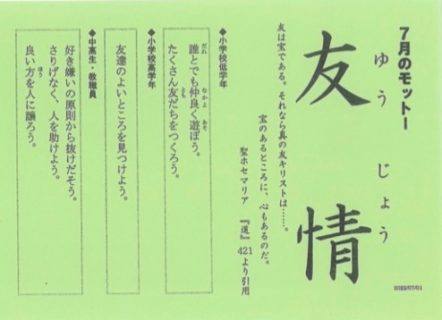 7月のモットー
ゆうじょう
友情
友は宝である。それなら真の友キリストは……。
宝のあるところに、心もあるのだ。
聖ホセマリア 『道』 421より引用
◆小学校低学年
だれ なかよ あそ
誰とでも仲良く遊ぼう。
とも
たくさん友だちをつくろう。
◆小学校高学年
友達のよいところを見つけよう。
◆中高生・教職員
好き嫌いの原則から抜けだそう。
さりげなく、人を助けよう。
ほう
良い方を人に譲ろう。